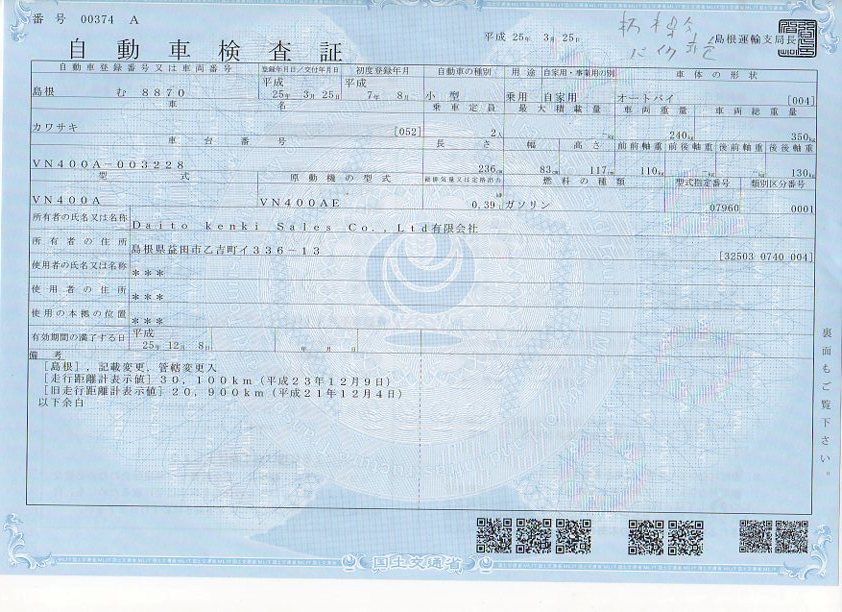 番号 00374 A
平成 25年 3月 25日
島根運輸支局長
自動車検査証
自動車登録番号又は車両番号 登録年月日/交付年月日 初度登録年月 自動車の種別 用途 自家用・事業用の別 車体の形状
島根 む 8870 平成 25年 3月 25日 平成 7年 8月 小型 乗用 自家用 オートバイ [004]
車名 乗車定員 最大積載量 車両重量 車両総重量
カワサキ [052] 2人 -kg 240kg 350kg
車台番号 長さ 幅 高さ 前前軸重 前後軸重 後前軸重 後後軸重
VN400A-003228 236cm 83cm 117cm 110kg -kg -kg 130kg
型式 原動機の型式 総排気量又は定格出力 燃料の種類 型式指定番号 類別区分番号
VN400A VN400AE 0.39L ガソリン 07960 0001
所有者の氏名又は名称 Daito kenki Sales Co.,Ltd有限会社
所有者の住所 島根県益田市乙吉町イ336-13 [32503 0740 004]
使用者の氏名又は名称 ***
使用者の住所 ***
使用の本拠の位置 ***
有効期間の満了する日 平成 25年 12月 8日 年 月 日
備考
[島根],記載変更,管轄変更入
[走行距離計表示値]30,100km(平成23年12月9日)
[旧走行距離計表示値]20,900km(平成21年12月4日)
以下余白
裏面もご覧下さい。
国土交通省